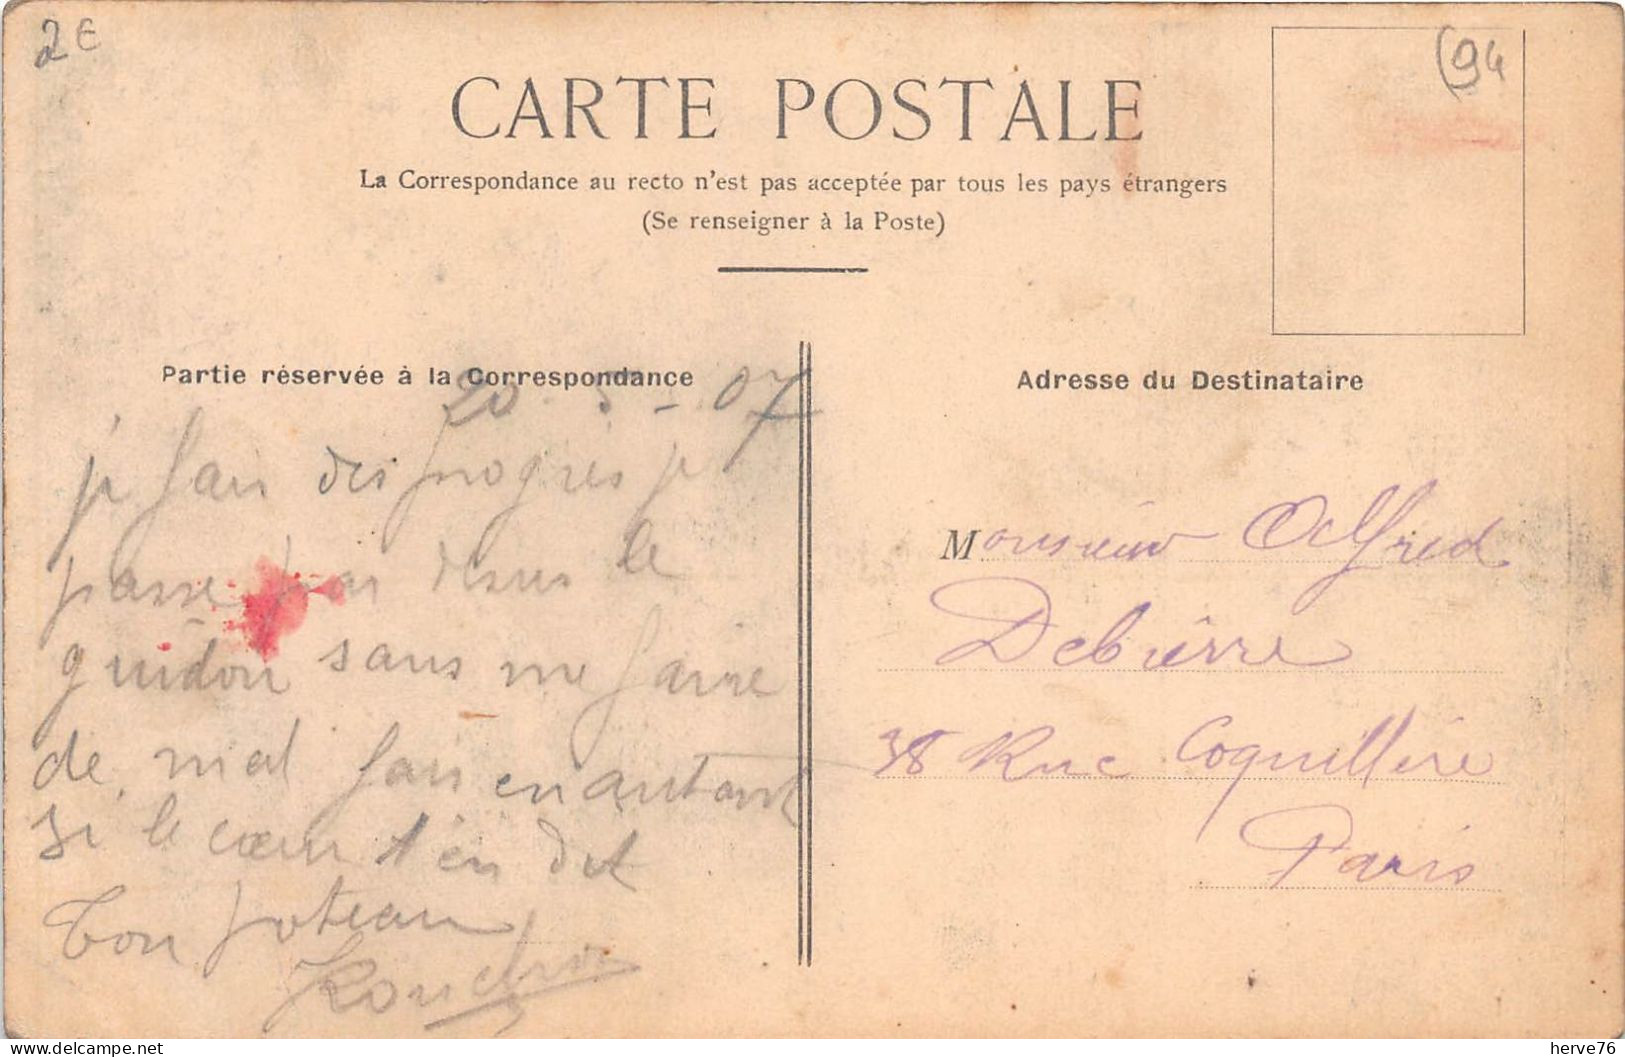 2€
(94
CARTE POSTALE
La Correspondance au recto n'est pas acceptée par tous les pays étrangers
(Se renseigner à la Poste)
Partie réservée à la Correspondance
Adresse du Destinataire
20 - 07
je fais des progres je
passe par desus le
guidon sans me faire
de mal fais en autant
si le cœur t'en dit
Ton poteau
Monsieur Alfred
Debièrre
38 Rue Coquillère
Paris
delcampe.net
herve76